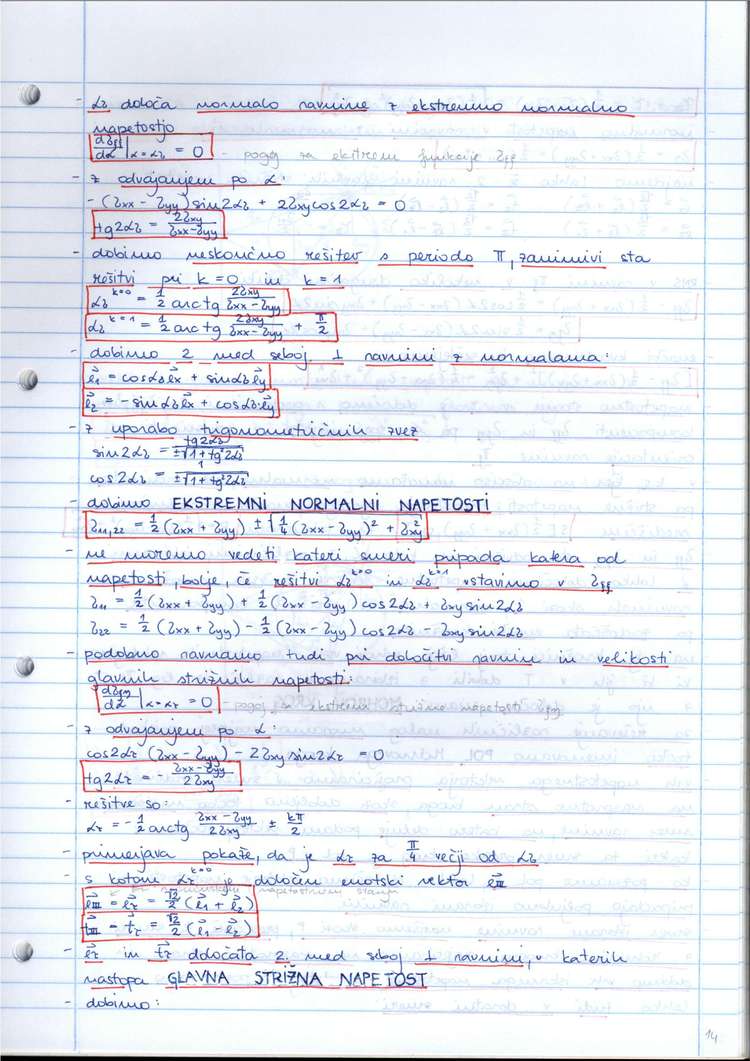 - α₂ določa normalo ravnine z ekstremno normalno
napetostjo
dζξξ/dα |α=α₂ = 0 - pogoj za ekstrem funkcije ζξξ
- z odvajanjem po α:
- (ζxx - ζyy) sin2α₂ + 2ζxy cos2α₂ = 0
tg2α₂ = 2ζxy / (ζxx - ζyy)
- dobimo neskončno rešitev s periodo π, zanimivi sta
rešitvi pri k=0 in k=1
α₂^(k=0) = 1/2 arctg 2ζxy / (ζxx - ζyy)
α₂^(k=1) = 1/2 arctg 2ζxy / (ζxx - ζyy) + π/2
- dobimo 2 med seboj ⊥ ravnini z normalama:
e⃗₁ = cosα₂e⃗x + sinα₂e⃗y
e⃗₂ = -sinα₂e⃗x + cosα₂e⃗y
- z uporabo trigonometričnih zvez
sin2α₂ = tg2α₂ / ±√(1+tg²2α₂)
cos2α₂ = 1 / ±√(1+tg²2α₂)
- dobimo EKSTREMNI NORMALNI NAPETOSTI
ζ11,22 = 1/2 (ζxx + ζyy) ± √(1/4 (ζxx - ζyy)² + ζxy²)
- ne moremo vedeti kateri smeri pripada katera od
napetosti, bolje, če rešitvi α₂^(k=0) in α₂^(k=1) vstavimo v ζξξ
ζ11 = 1/2 (ζxx + ζyy) + 1/2 (ζxx - ζyy) cos2α₂ + ζxy sin2α₂
ζ22 = 1/2 (ζxx + ζyy) - 1/2 (ζxx - ζyy) cos2α₂ - ζxy sin2α₂
- podobno ravnamo tudi pri določitvi ravnine in velikosti
glavnih strižnih napetosti:
dζξη/dα |α=ατ = 0 - pogoj za ekstrem strižne napetosti ζξη
- z odvajanjem po α:
cos2ατ (ζxx - ζyy) - 2ζxy sin2ατ = 0
tg2ατ = - (ζxx - ζyy) / 2ζxy
- rešitve so:
ατ = - 1/2 arctg (ζxx - ζyy) / 2ζxy ± kπ/2
- primerjava pokaže, da je ατ za π/4 večji od α₂
- s kotom ατ^(k=0) je določen enotski vektor e⃗III
napetostnem stanju
e⃗III = e⃗τ = √2/2 (e⃗₁ + e⃗₂)
t⃗III = t⃗τ = √2/2 (e⃗₁ - e⃗₂)
- e⃗τ in t⃗τ določata 2 med seboj ⊥ ravnini, v katerih
nastopa GLAVNA STRIŽNA NAPETOST
- dobimo:
14